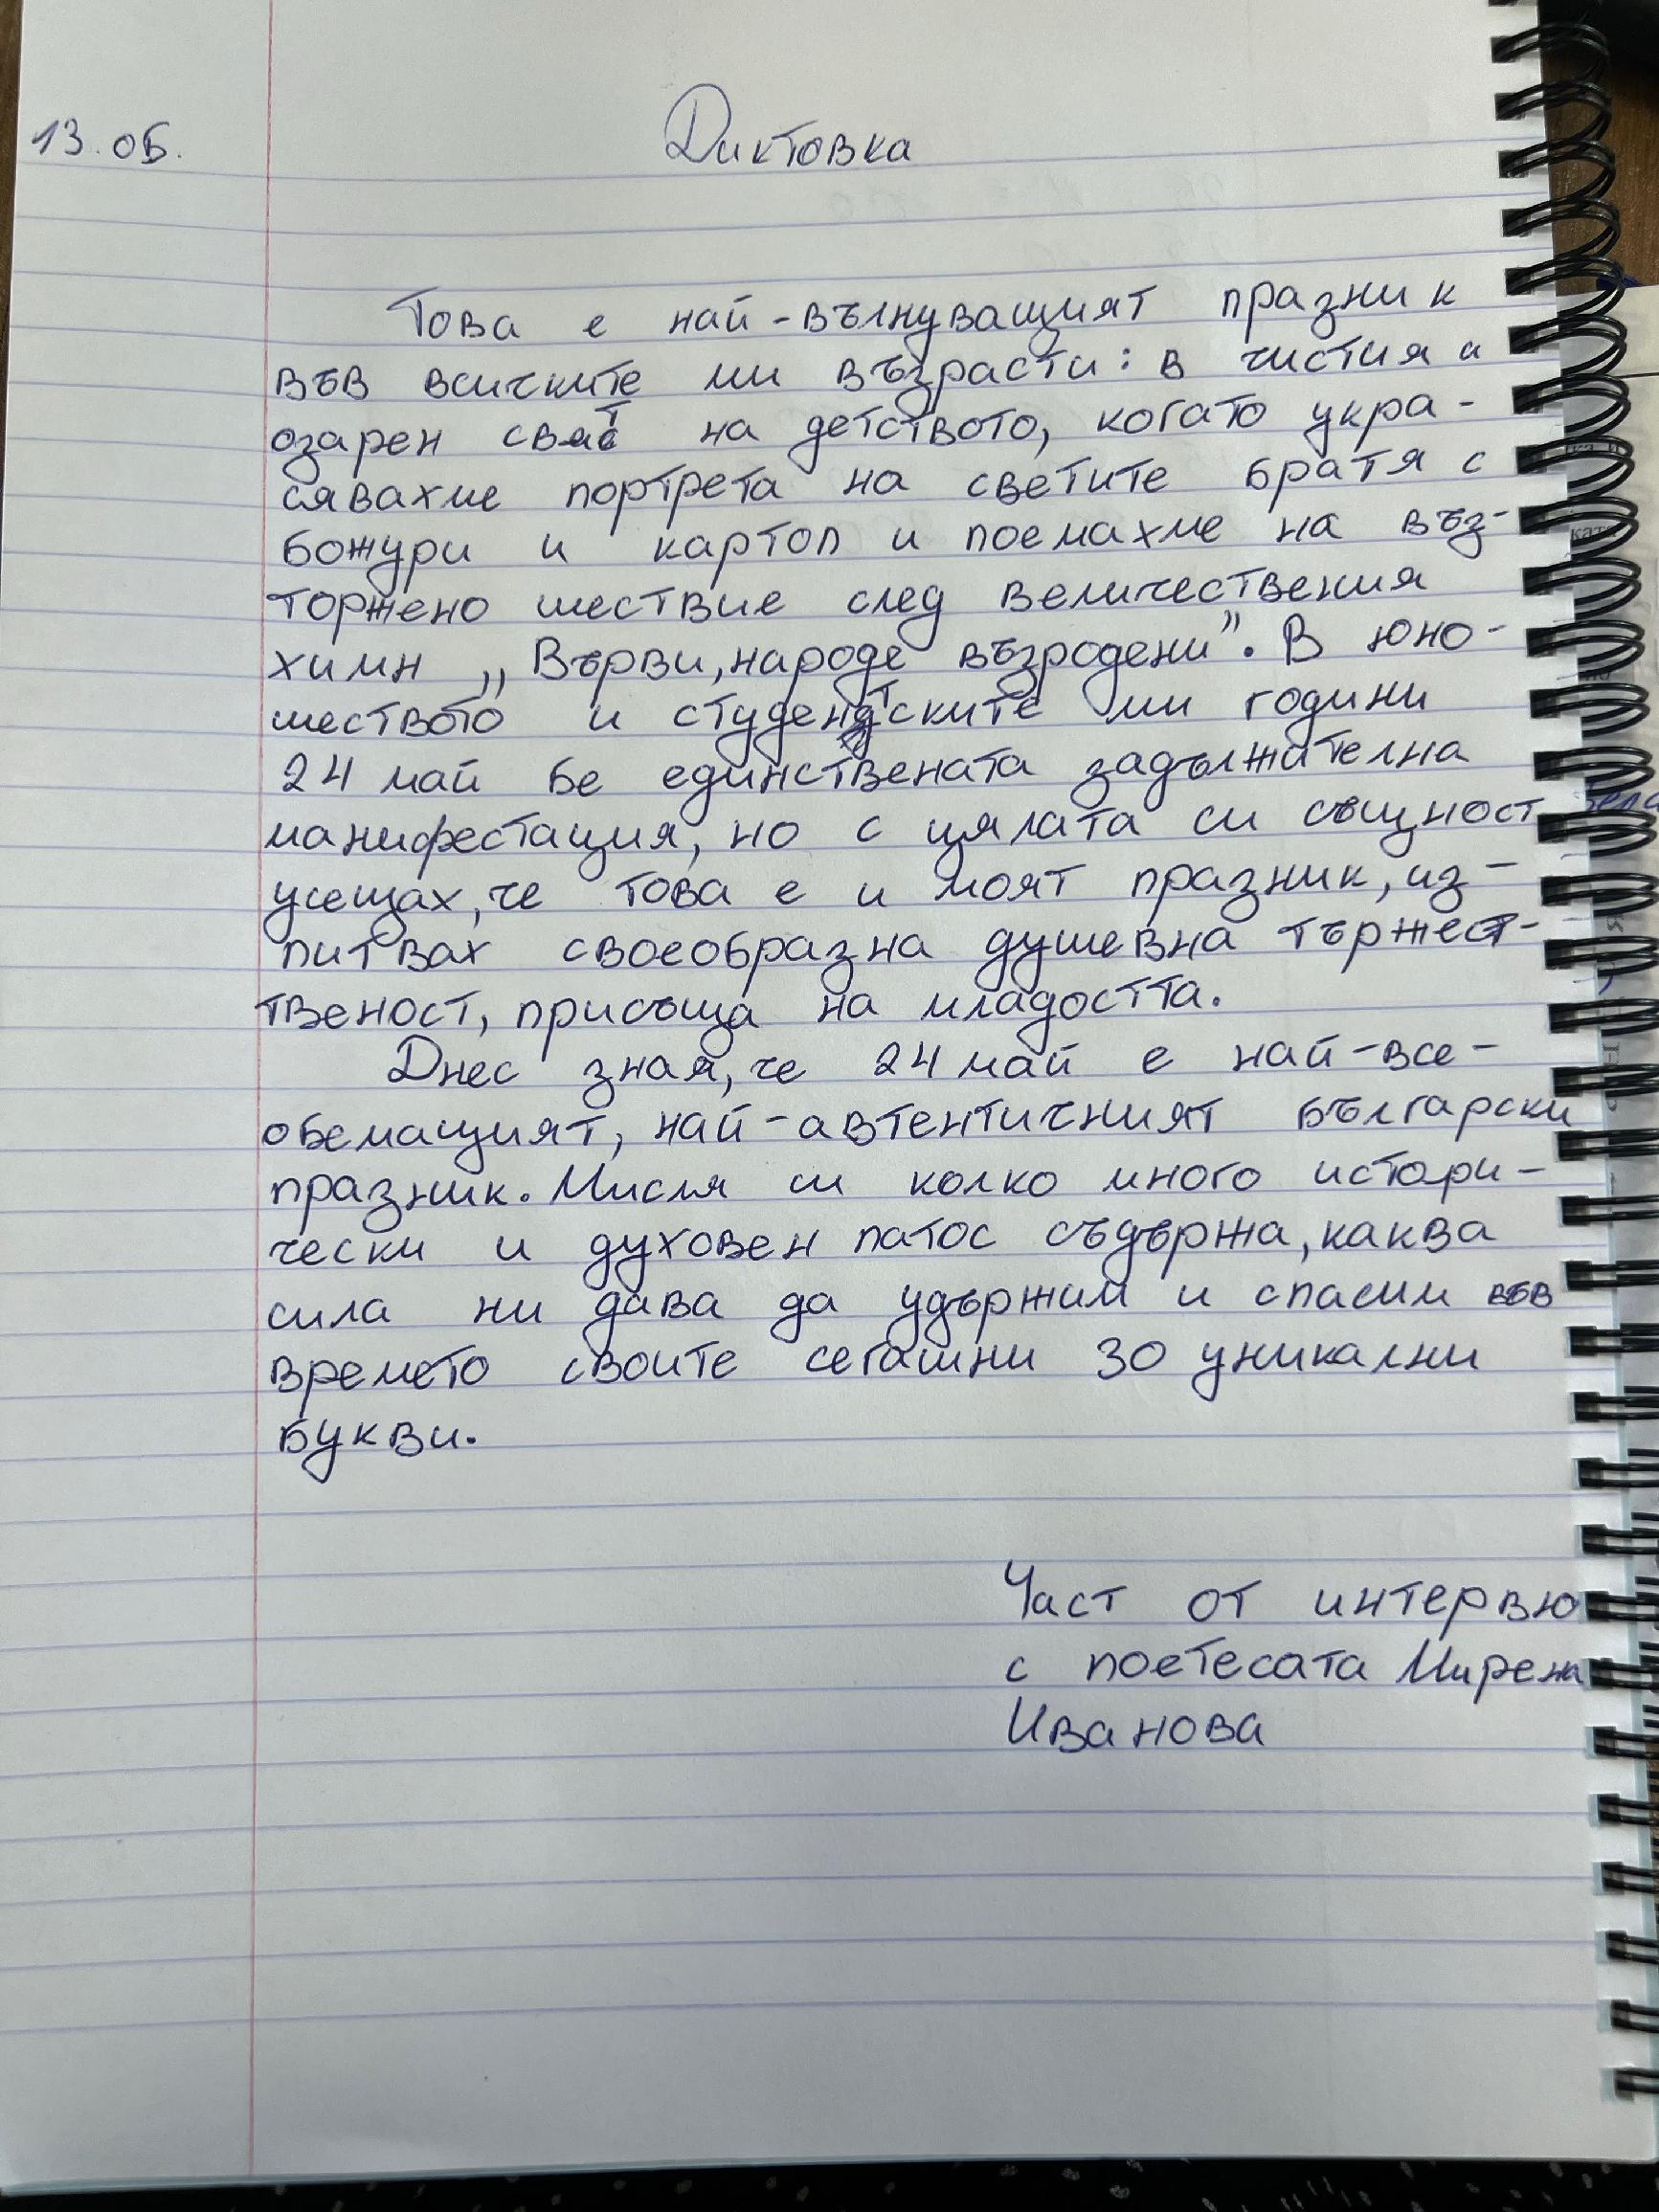 13.05.
Диктовка
Това е най-вълнуващият празник
във всичките ми възрасти: в чистия и
озарен свят на детството, когато укра-
сявахме портрета на светите братя с
божури и картоп и поемахме на въз-
торжено шествие след величествения
химн „Върви, народе възродени". В юно-
шеството и студентските ми години
24 май бе единствената задължителна
манифестация, но с цялата си същност
усещах, че това е и моят празник, из-
питвах своеобразна душевна тържест-
твеност, присъща на младостта.
Днес зная, че 24 май е най-все-
обемащият, най-автентичният български
празник. Мисля си колко много истори-
чески и духовен патос съдържа, каква
сила ни дава да удържим и спасим във
времето своите сегашни 30 уникални
букви.
Част от интервю
с поетесата Мирена
Иванова